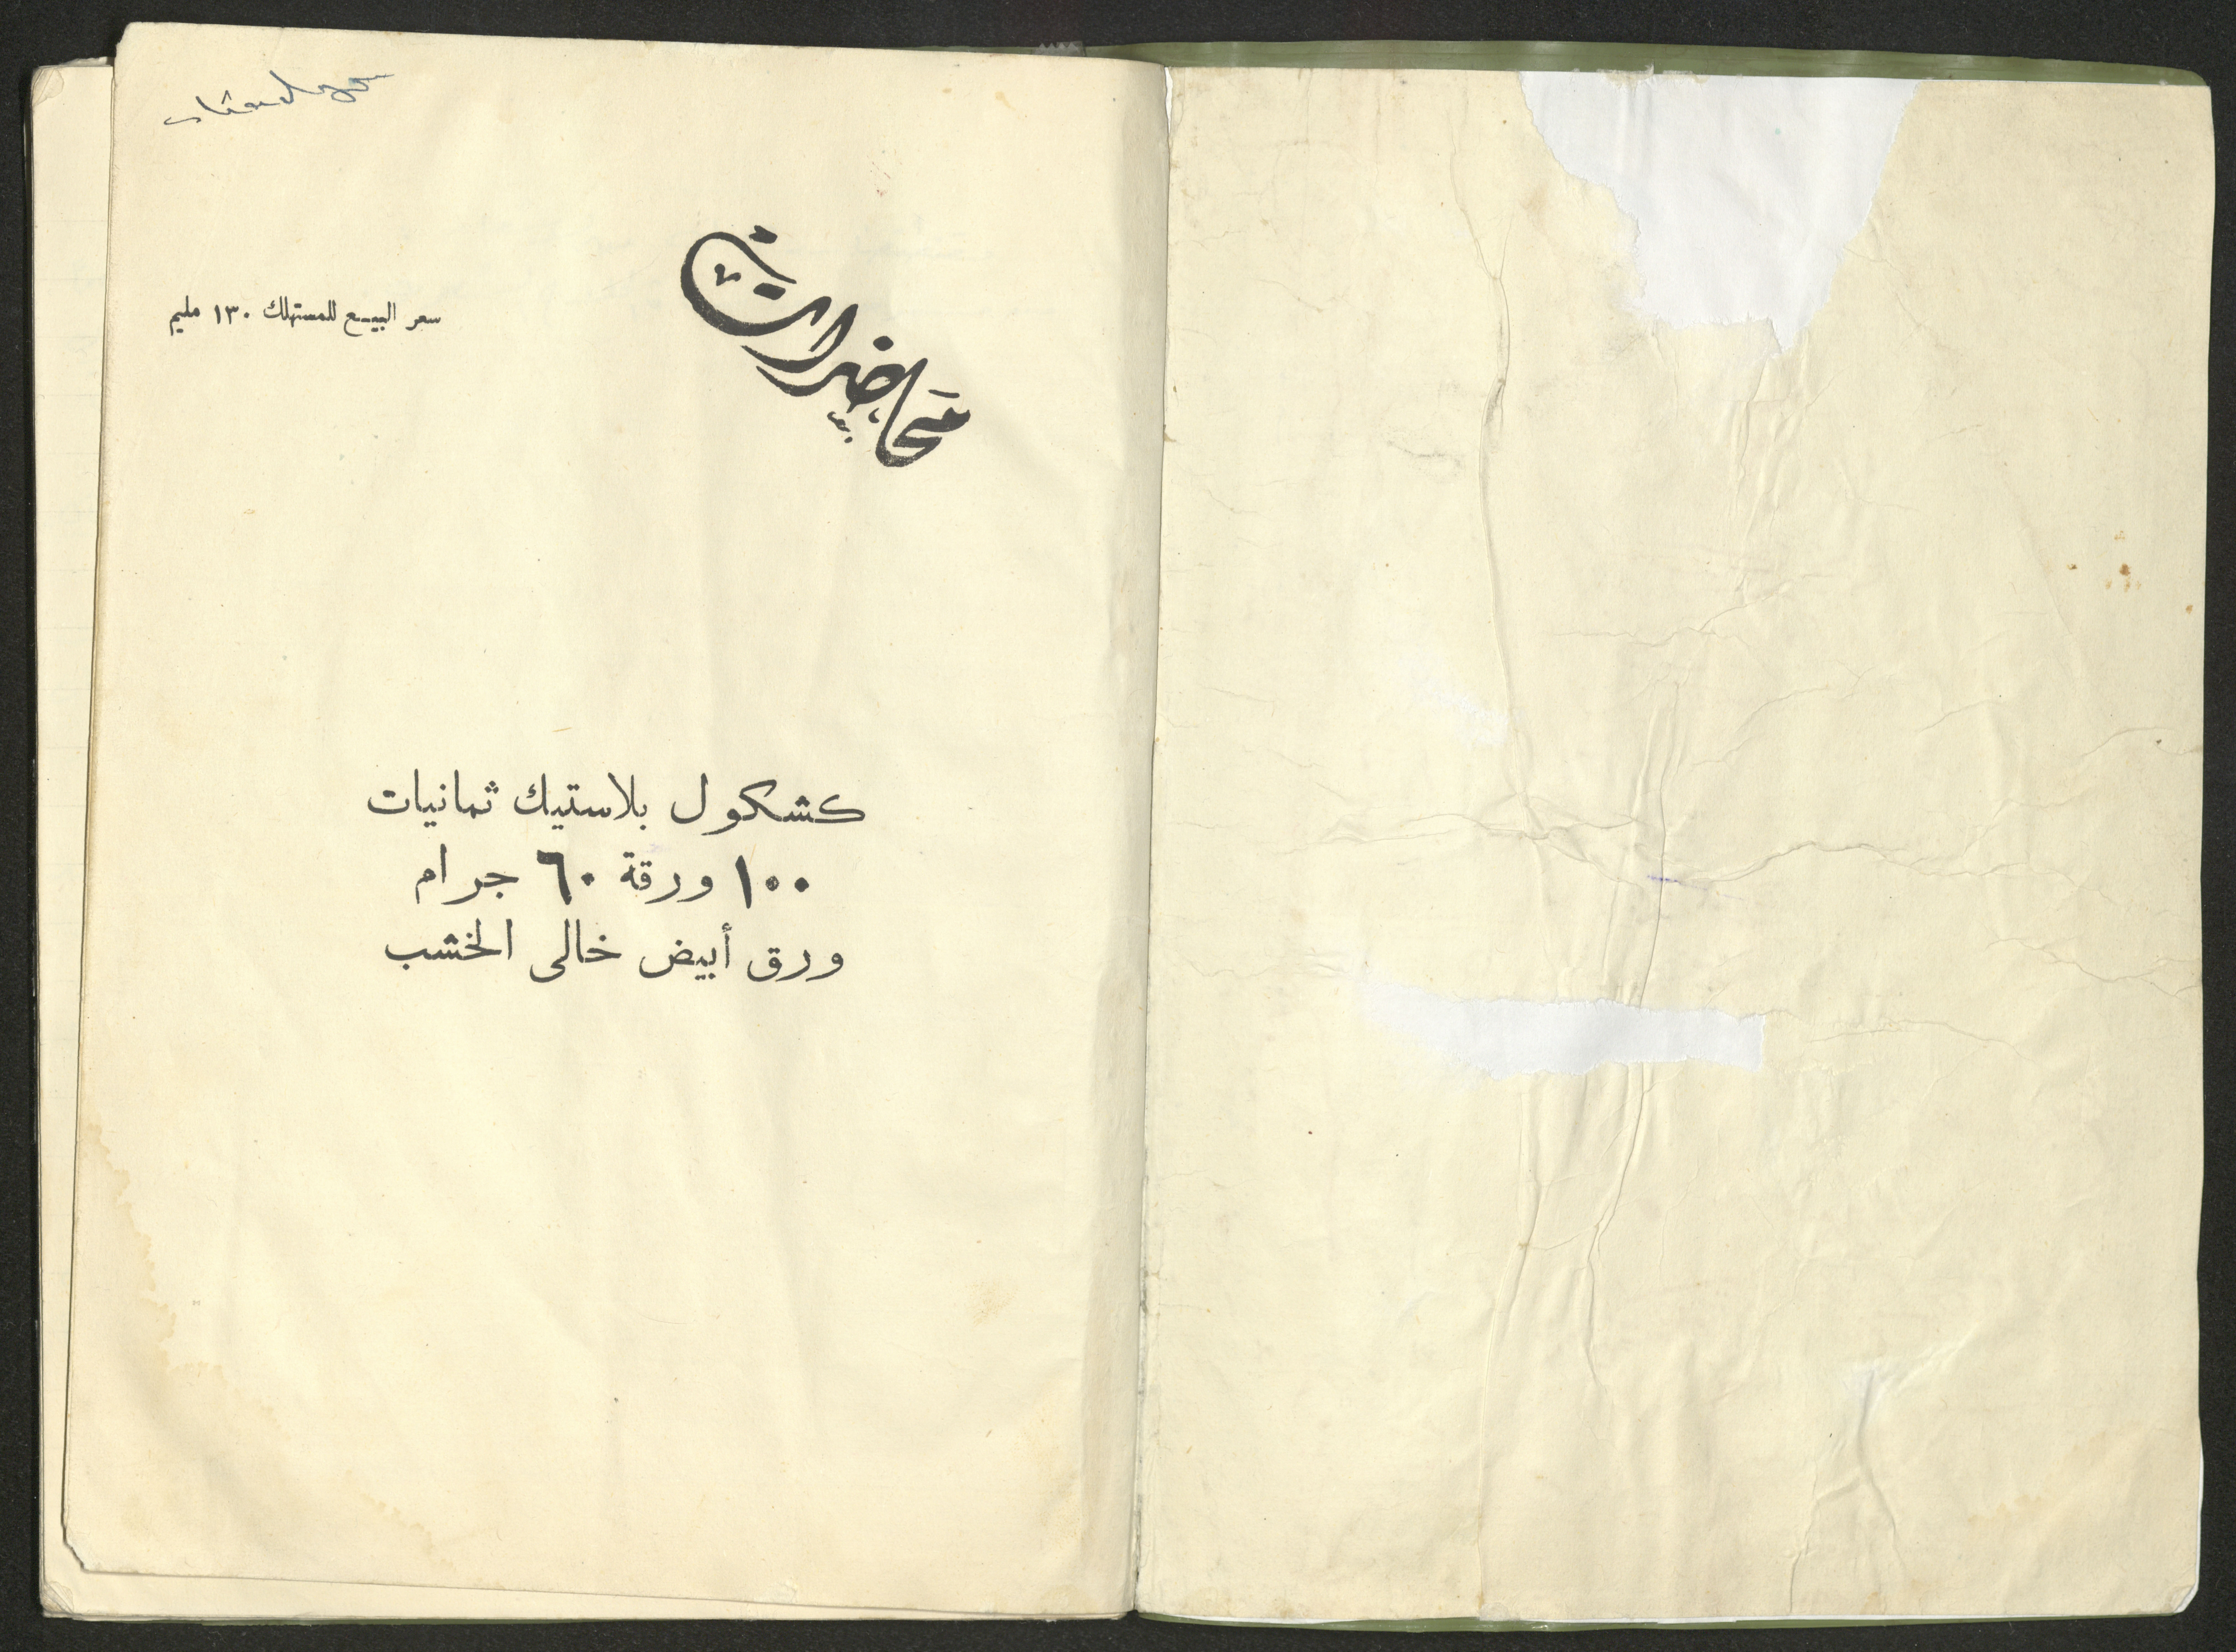 محاضرات
سعر البيـع للمستهلك ١٣٠ مليم
كشكول بلاستيك ثمانيات
١٠٠ ورقة ٦٠ جرام
ورق أبيض خالى الخشب